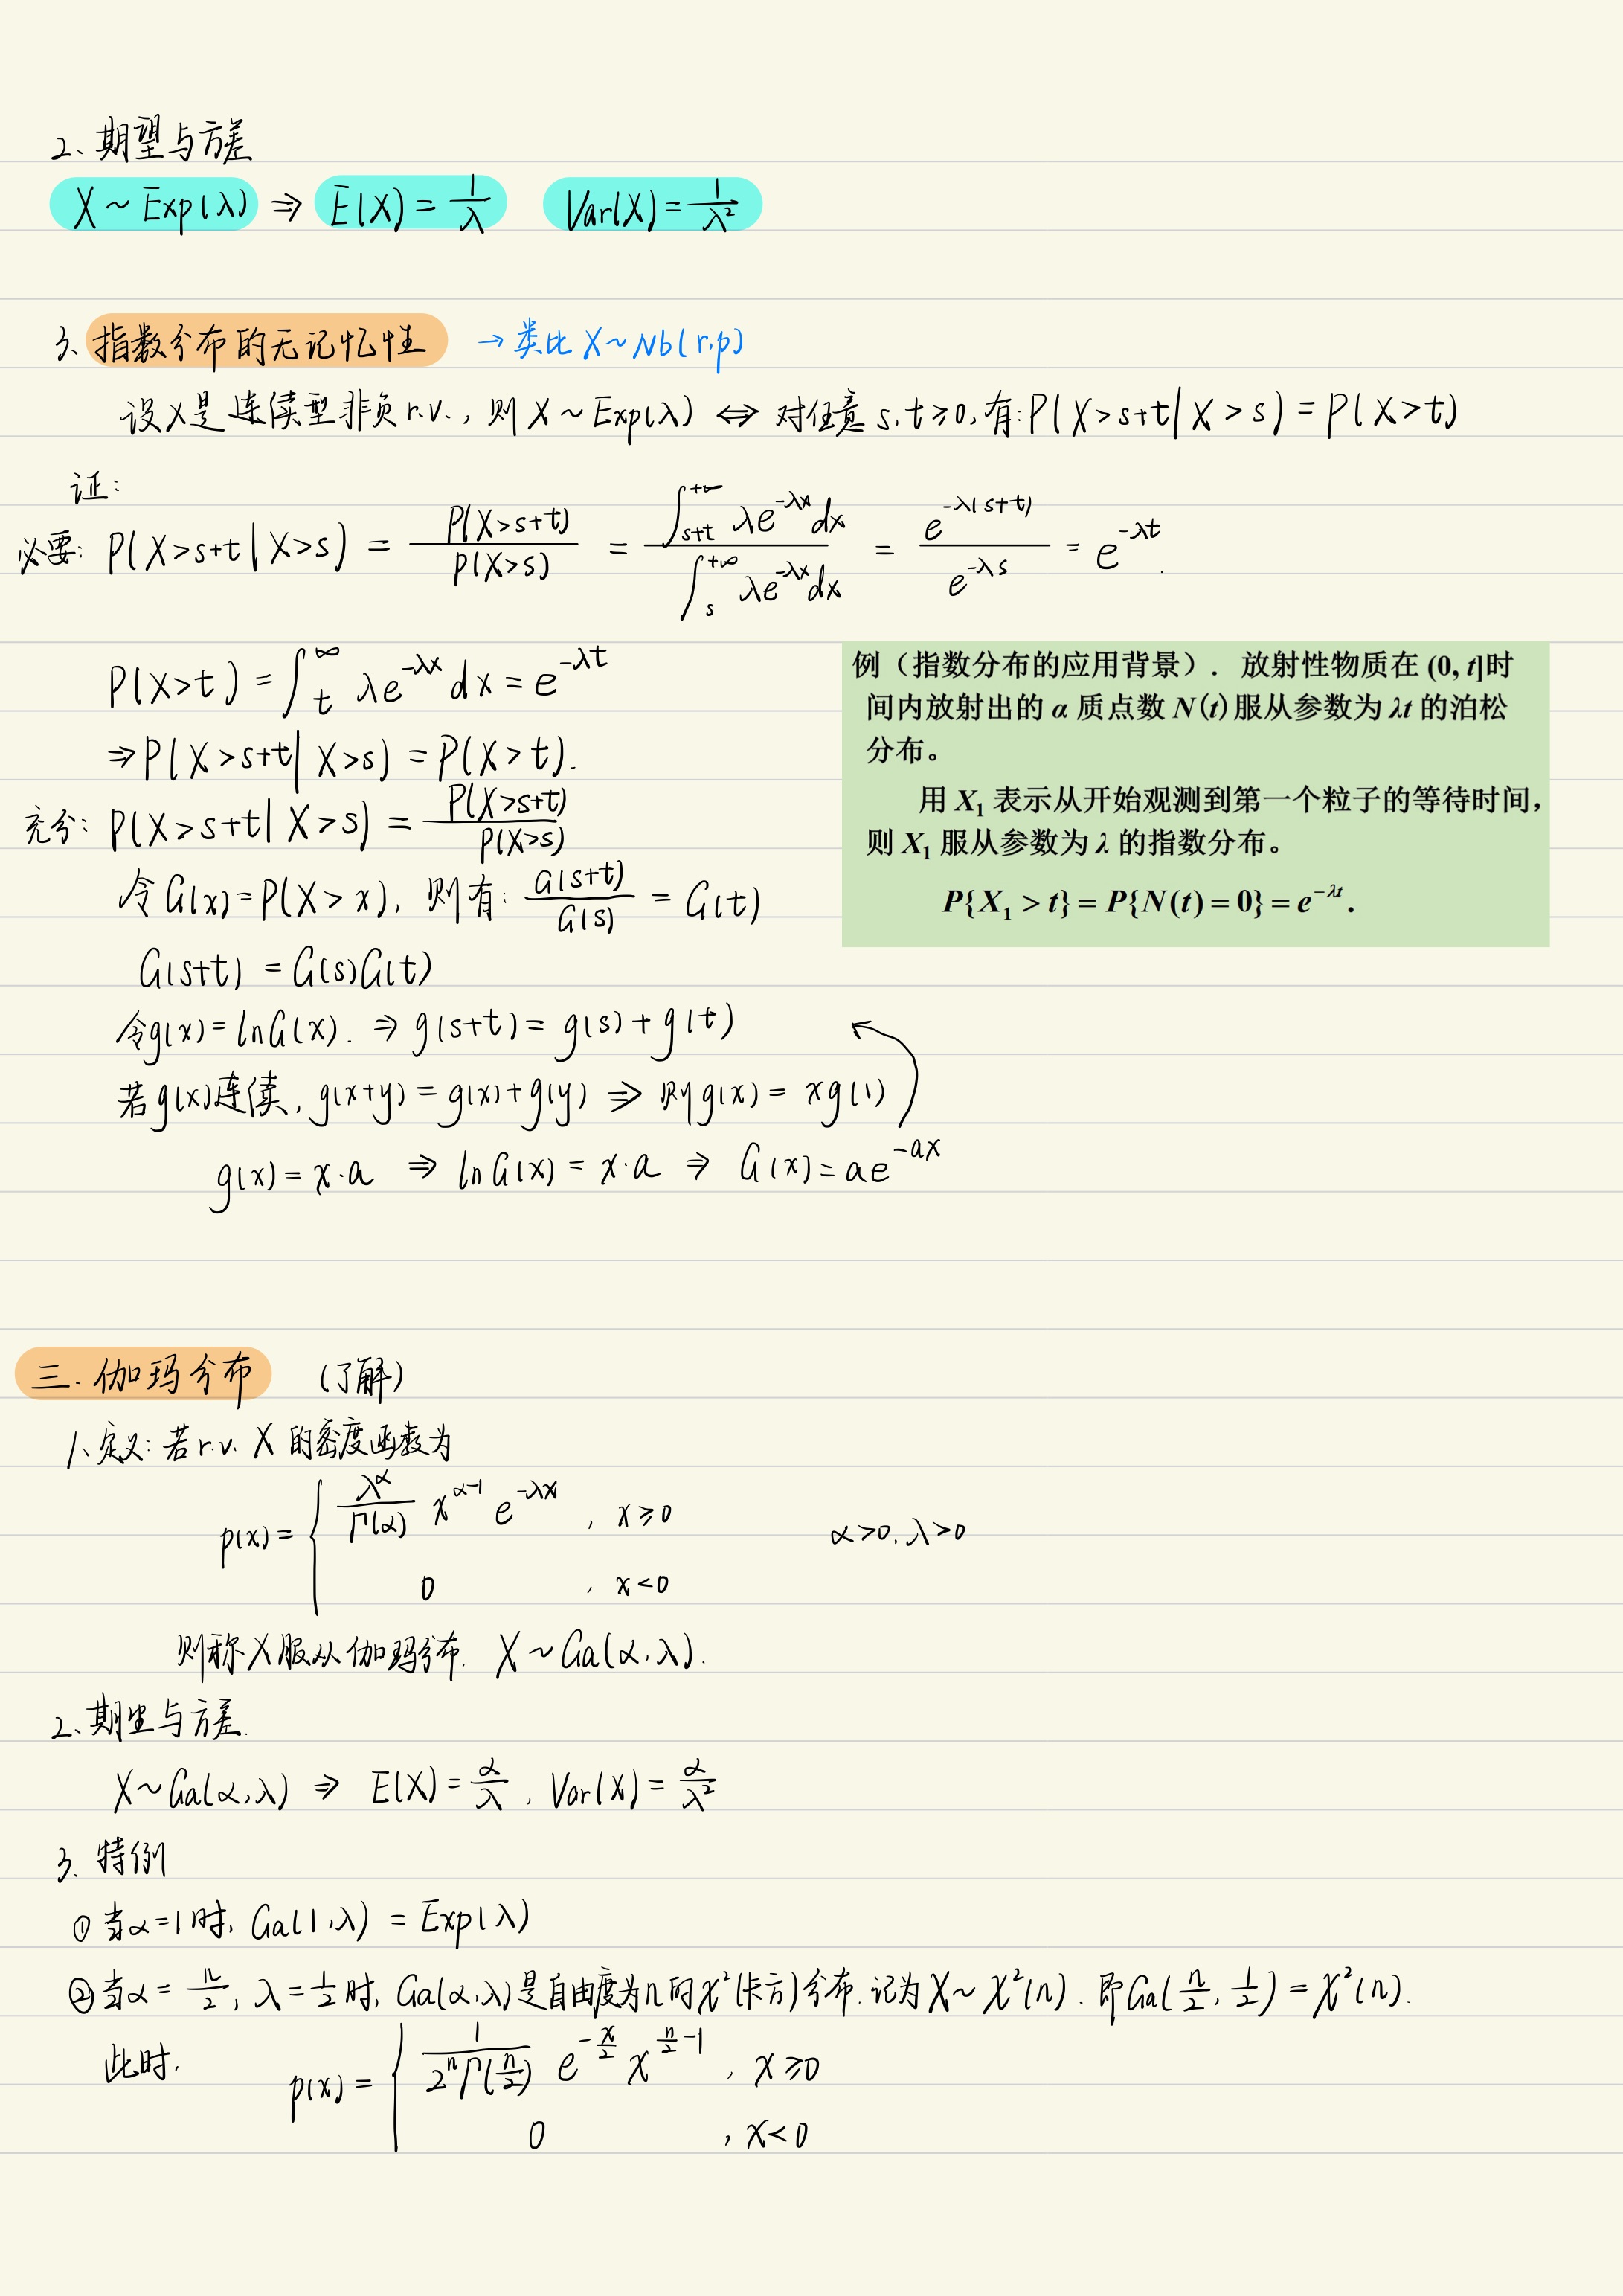 2、期望与方差
X ~ Exp(λ) ⇒ E(X) = 1/λ Var(X) = 1/λ²
3、指数分布的无记忆性 → 类比 X ~ Nb(r,p)
设X是连续型非负r.v.，则 X ~ Exp(λ) ⇔ 对任意 s,t ≥ 0, 有: P(X>s+t|X>s) = P(X>t)
证:
必要: P(X>s+t|X>s) = P(X>s+t)/P(X>s) = ∫_{s+t}^{+∞} λe^{-λx}dx / ∫_s^{+∞} λe^{-λx}dx = e^{-λ(s+t)}/e^{-λs} = e^{-λt}.
P(X>t) = ∫_t^∞ λe^{-λx} dx = e^{-λt}
⇒ P(X>s+t|X>s) = P(X>t).
充分: P(X>s+t|X>s) = P(X>s+t)/P(X>s)
令 G(x) = P(X>x), 则有: G(s+t)/G(s) = G(t)
G(s+t) = G(s)G(t)
令g(x) = lnG(x). ⇒ g(s+t) = g(s) + g(t)
若g(x)连续, g(x+y) = g(x)+g(y) ⇒ 则g(x) = xg(1)
g(x) = x·a ⇒ lnG(x) = x·a ⇒ G(x) = ae^{-ax}
例（指数分布的应用背景）. 放射性物质在 (0, t]时
间内放射出的 α 质点数 N(t)服从参数为 λt 的泊松
分布。
用 X₁ 表示从开始观测到第一个粒子的等待时间，
则 X₁ 服从参数为 λ 的指数分布。
P{X₁ > t} = P{N(t) = 0} = e^{-λt}.
三. 伽玛分布 (了解)
1、定义: 若r.v. X 的密度函数为
p(x) = { λ^α/Γ(α) x^{α-1} e^{-λx} , x ≥ 0 α>0, λ>0
0 , x<0
则称X服从伽玛分布. X ~ Ga(α,λ).
2、期望与方差.
X ~ Ga(α,λ) ⇒ E(X) = α/λ , Var(X) = α/λ²
3. 特例
① 当α=1时, Ga(1,λ) = Exp(λ)
② 当α = n/2, λ = 1/2 时, Ga(α,λ)是自由度为n的χ²(卡方)分布. 记为X ~ χ²(n). 即Ga(n/2, 1/2) = χ²(n).
此时, p(x) = { 1/(2^n Γ(n/2)) e^{-x/2} x^{n/2-1} , x ≥ 0
0 , x<0